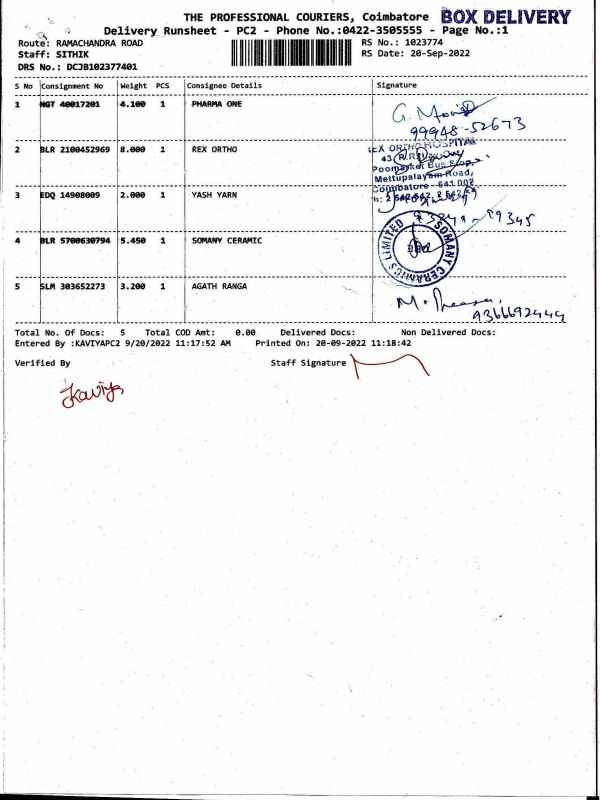 THE PROFESSIONAL COURIERS, Coimbatore BOX DELIVERY
Delivery Runsheet - PC2 - Phone No.:0422-3505555 - Page No.:1
Route: RAMACHANDRA ROAD RS No.: 1023774
Staff: SITHIK RS Date: 20-Sep-2022
DRS No.: DCJB102377401
S No Consignment No Weight PCS Consignee Details Signature
1 NGT 40017201 4.100 1 PHARMA ONE
99948-52673
2 BLR 2100452969 8.000 1 REX ORTHO
REX ORTHO HOSPITAL
43
Poomarket Bus Stop,
Mettupalayam Road,
Coimbatore - 641 002
3 EDQ 14908009 2.000 1 YASH YARN
4 BLR 5700630794 5.450 1 SOMANY CERAMIC
SOMANY CERAMICS LIMITED
5 SLM 303652273 3.200 1 AGATH RANGA
9366692444
Total No. Of Docs: 5 Total COD Amt: 0.00 Delivered Docs: Non Delivered Docs:
Entered By :KAVIYAPC2 9/20/2022 11:17:52 AM Printed On: 20-09-2022 11:18:42
Verified By Staff Signature
Kaviya